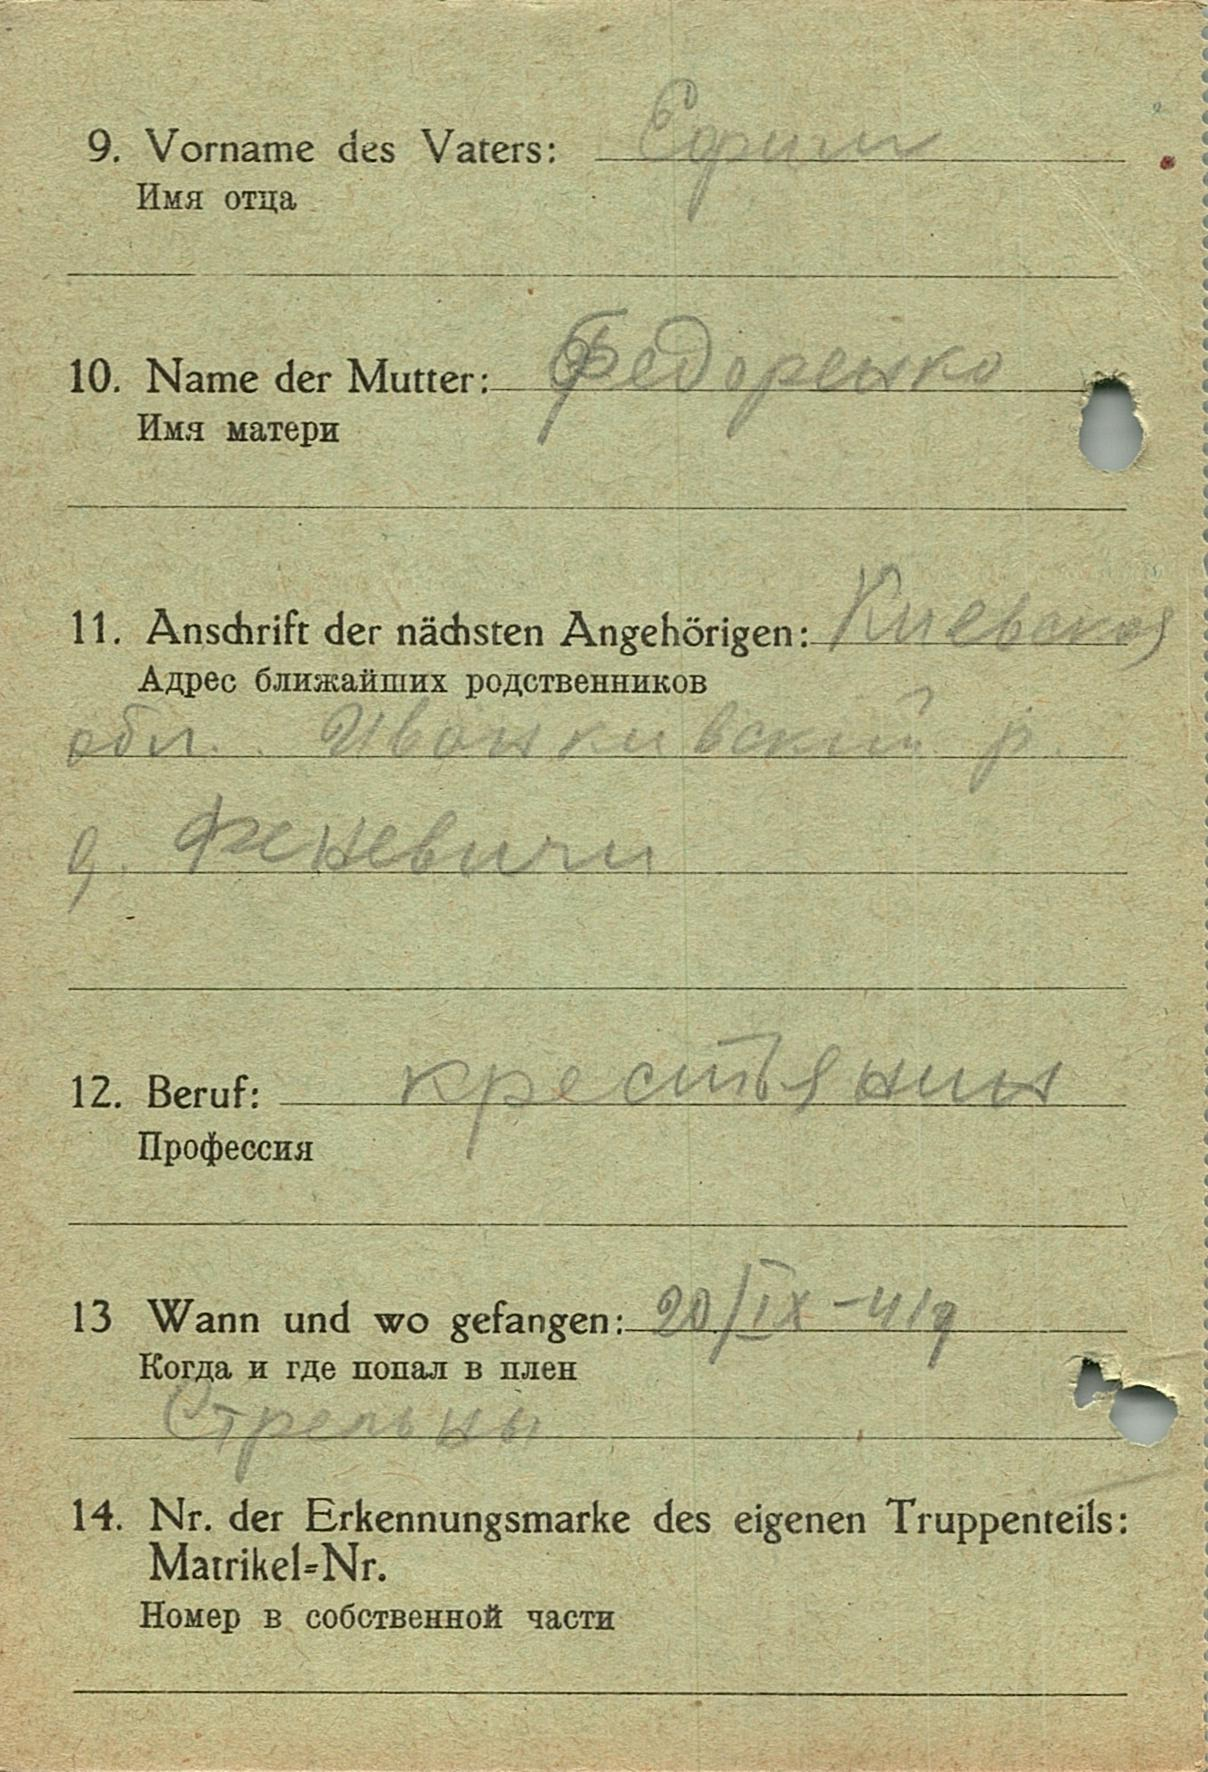 9. Vorname des Vaters: Ефим
Имя отца
10. Name der Mutter: Федоренко
Имя матери
11. Anschrift der nächsten Angehörigen: Киевская
Адрес ближайших родственников
обл. Иванкивский р.
д. Феневичи
12. Beruf: крестьянин
Профессия
13 Wann und wo gefangen: 20/IX-41 г
Когда и где попал в плен
Стрельны
14. Nr. der Erkennungsmarke des eigenen Truppenteils:
Matrikel=Nr.
Номер в собственной части